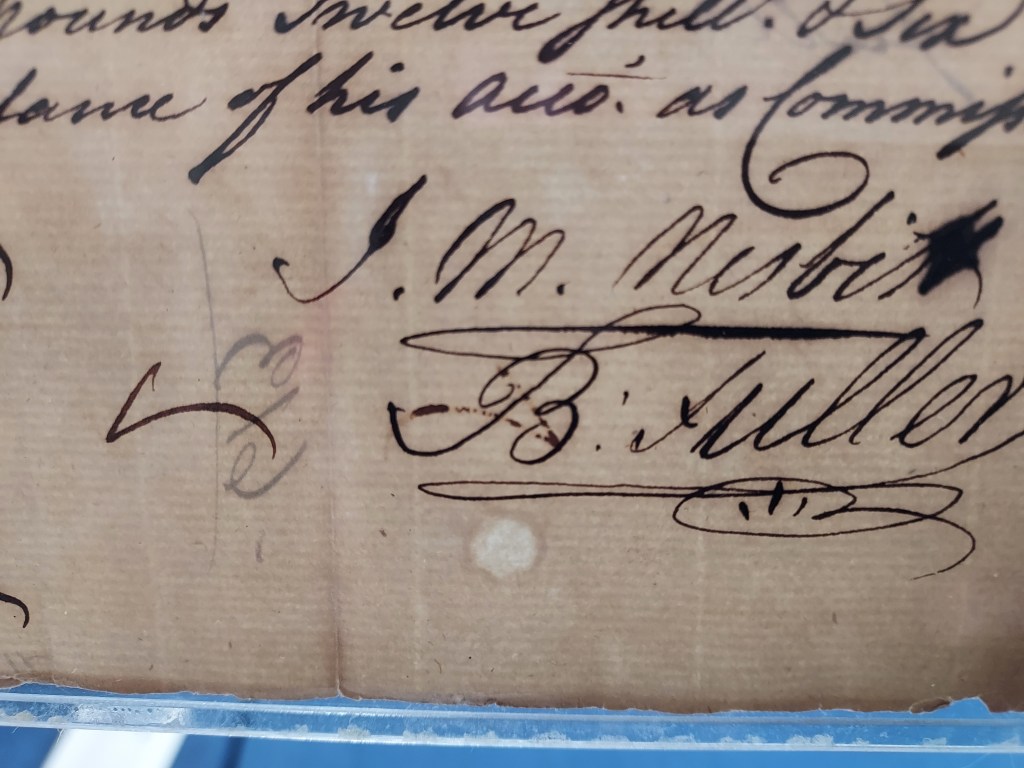 pounds Twelve Shill. & Six
lance of his Acco. as Commiss
J. M. Nesbitt
B. Fuller